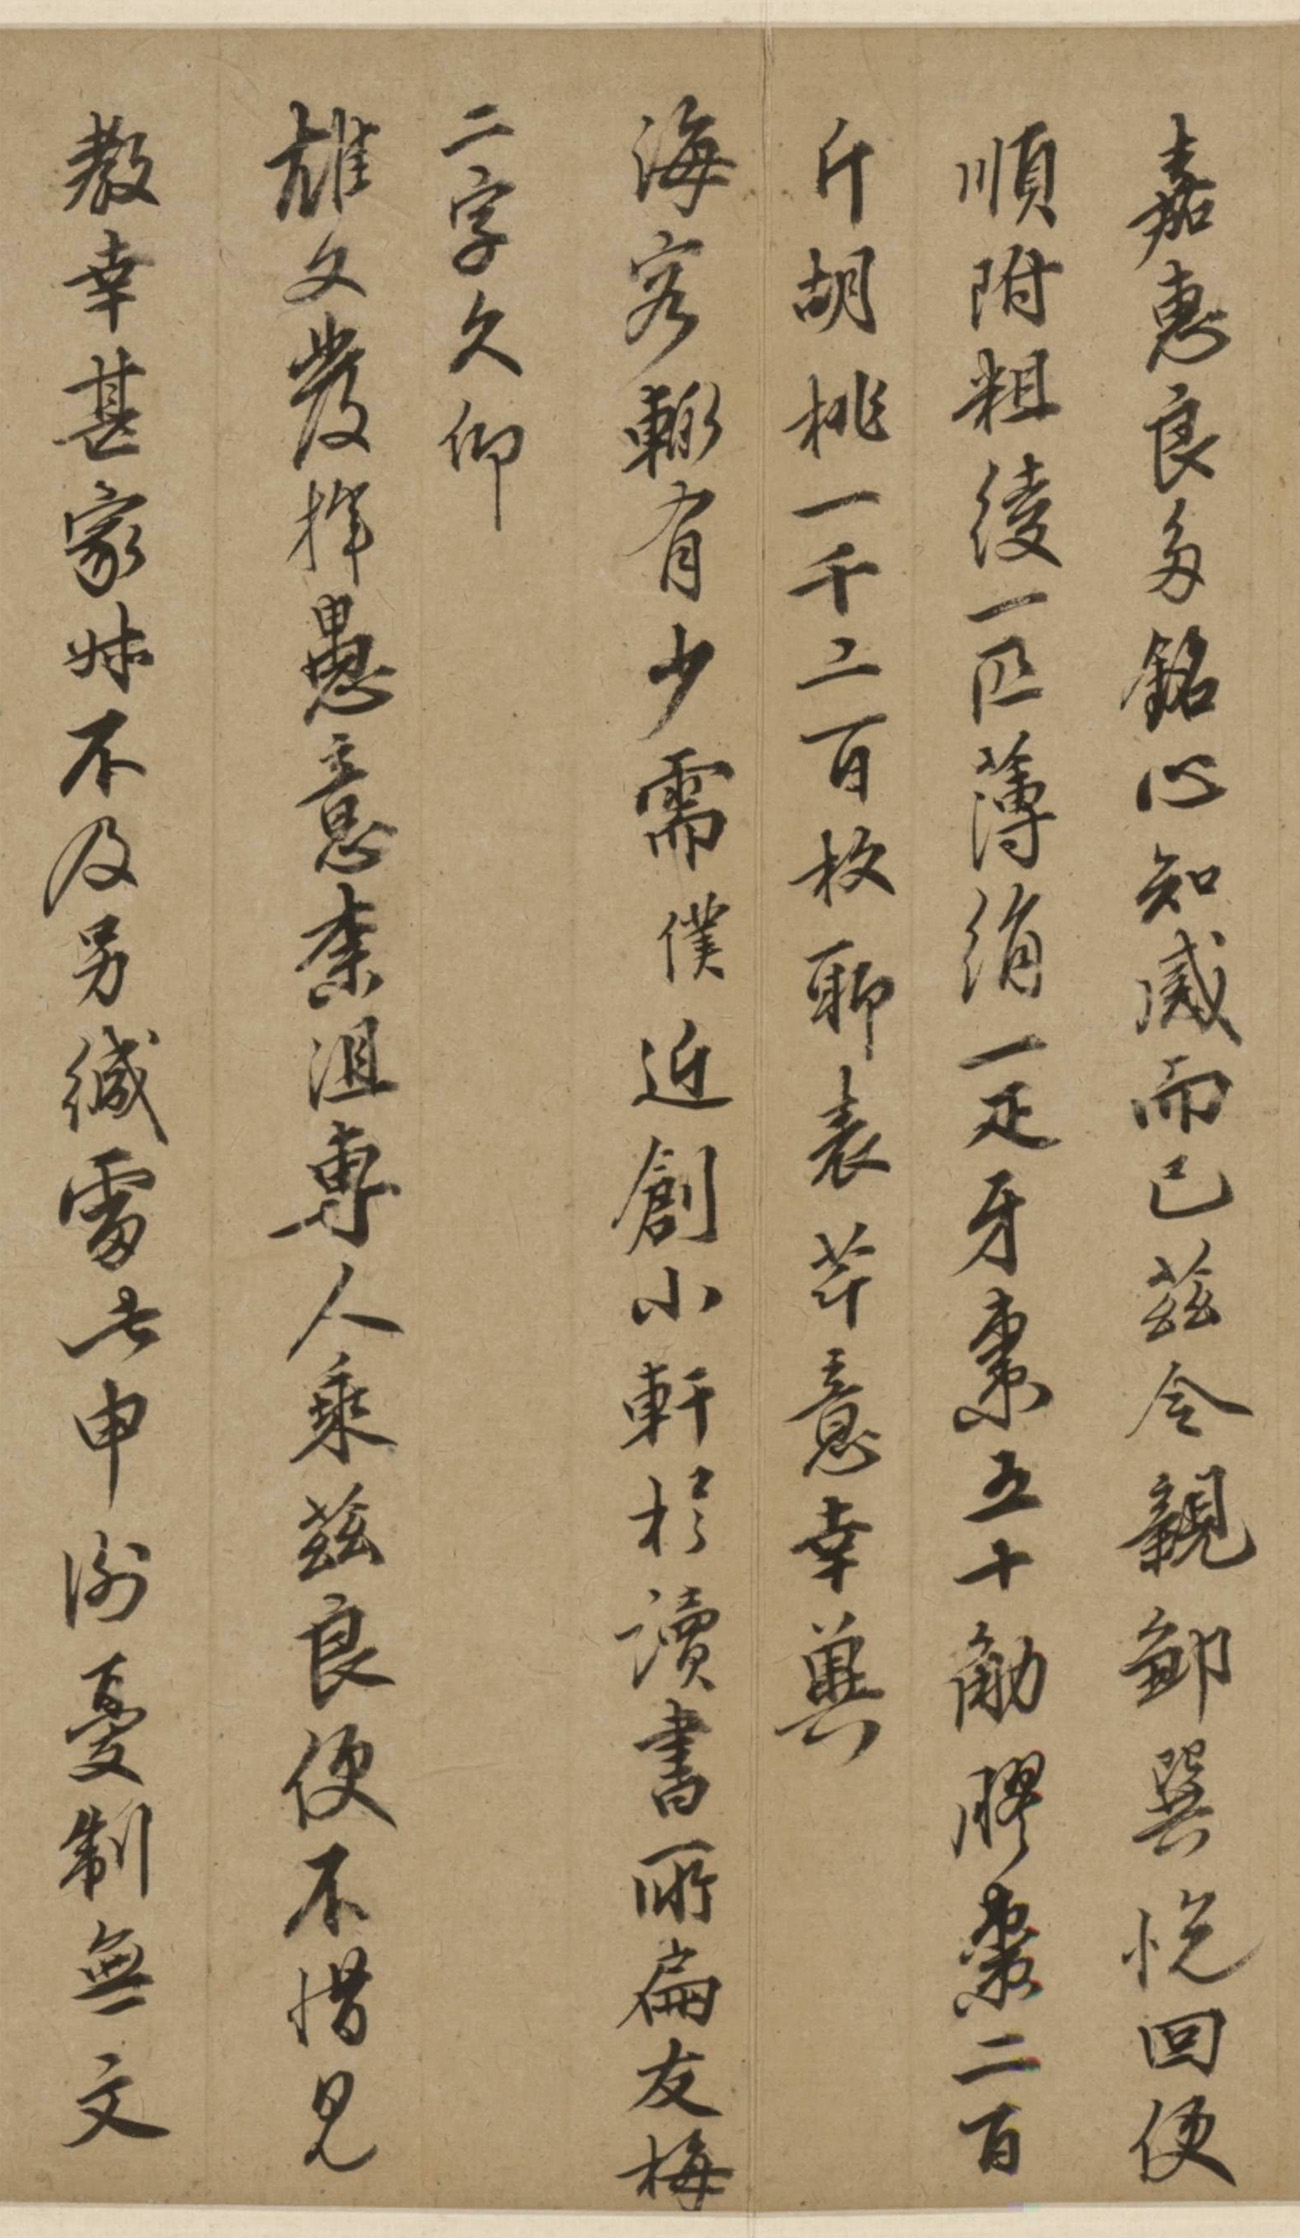 嘉惠良多銘心知感而已茲令親卸巽悅回便
順附粗綾一匹薄絹一疋牙棗五十觔膠棗二百
斤胡桃一千二百枚聊表芹意幸與
海容輒有少需僕近創小軒於讀書所扁友梅
二字久仰
雄文發揮愚意柰沮專人乘茲良便不惜見
教幸甚家妹不及另緘電此申謝憂制無文